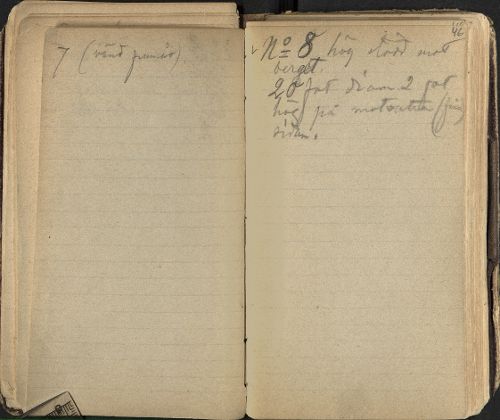 7 (vänd
46
No 8 hög stödd mot
berget.
20 fot diam 2 fot
hög på motsatta
sidan.